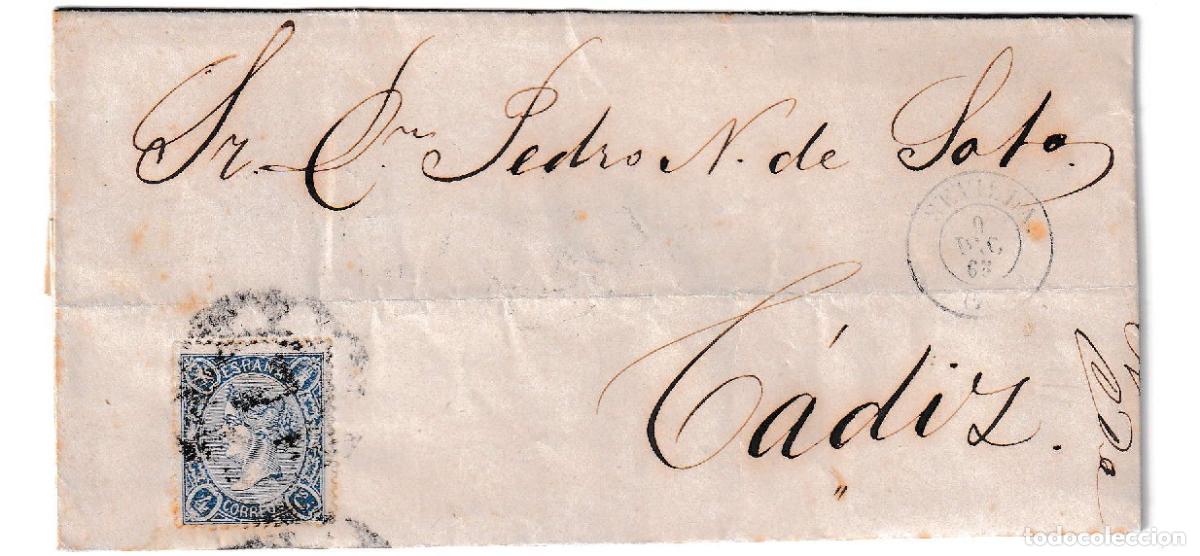 Sr. Dn Pedro N. de Soto.
SEVILLA.
9
DIC
65
Cádiz.
ESPAÑA
4 Cs
CORREOS
todocoleccion